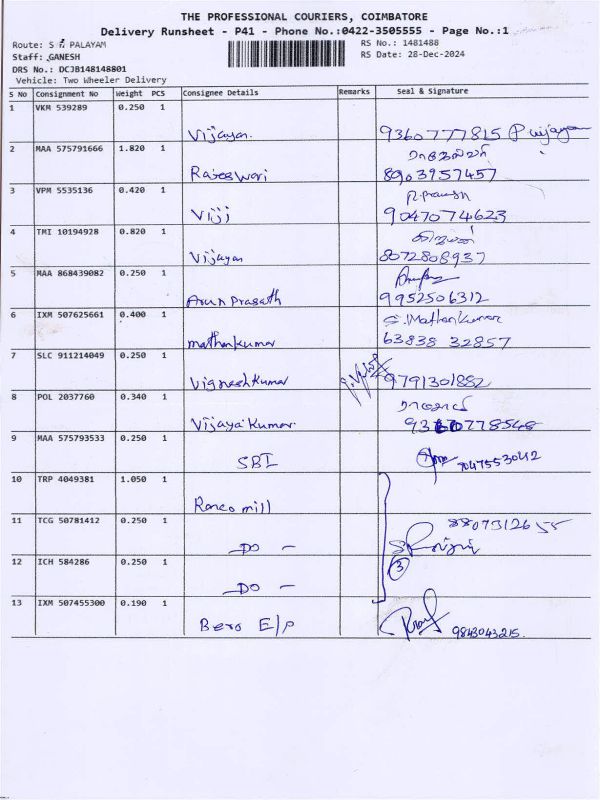 THE PROFESSIONAL COURIERS, COIMBATORE
Delivery Runsheet - P41 - Phone No.:0422-3505555 - Page No.:1
Route: S R PALAYAM
RS No.: 1481488
Staff: GANESH
RS Date: 28-Dec-2024
DRS No.: DCJB148148801
Vehicle: Two Wheeler Delivery
S No Consignment No Weight PCS Consignee Details Remarks Seal & Signature
1 VKM 539289 0.250 1
Vijayan. 9360777815 P Vijayan
2 MAA 575791666 1.820 1 ராஜேஸ்வரி
Rajeswari 8903957457
3 VPM 5535136 0.420 1
Viji 9047074623
4 TMI 10194928 0.820 1
Vijayan 8072808937
5 MAA 868439082 0.250 1
Arun Prasath 9952506312
6 IXM 507625661 0.400 1 S. Mathan Kumar
mathankumar 63838 32857
7 SLC 911214049 0.250 1
Vignesh Kumar 9791301882
8 POL 2037760 0.340 1
Vijaya Kumar. 9360778548
9 MAA 575793533 0.250 1
SBI 7047553042
10 TRP 4049381 1.050 1
Ranco mill
11 TCG 50781412 0.250 1 8807312655
- DO -
12 ICH 584286 0.250 1 3
- DO -
13 IXM 507455300 0.190 1
Bero E/P 9843043215.